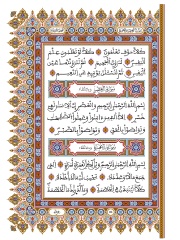 كَلَّا سَوْفَ تَعْلَمُونَ ۝ كَلَّا لَوْ تَعْلَمُونَ عِلْمَ
الْيَقِينِ ۝ لَتَرَوُنَّ الْجَحِيمَ ۝ ثُمَّ لَتَرَوُنَّهَا عَيْنَ
الْيَقِينِ ۝ ثُمَّ لَتُسْأَلُنَّ يَوْمَئِذٍ عَنِ النَّعِيمِ ۝
سورة العصر
بِسْمِ اللَّهِ الرَّحْمَٰنِ الرَّحِيمِ وَالْعَصْرِ ۝ إِنَّ الْإِنسَانَ لَفِي
خُسْرٍ ۝ إِلَّا الَّذِينَ آمَنُوا وَعَمِلُوا الصَّالِحَاتِ
وَتَوَاصَوْا بِالْحَقِّ ۝ وَتَوَاصَوْا بِالصَّبْرِ ۝
بِسْمِ اللَّهِ الرَّحْمَٰنِ الرَّحِيمِ وَيْلٌ لِّكُلِّ هُمَزَةٍ لُّمَزَةٍ ۝
الَّذِي جَمَعَ مَالًا وَعَدَّدَهُ ۝ يَحْسَبُ أَنَّ مَالَهُ أَخْلَدَهُ ۝
كَلَّا لَيُنبَذَنَّ فِي الْحُطَمَةِ ۝ وَمَا أَدْرَاكَ مَا الْحُطَمَةُ ۝